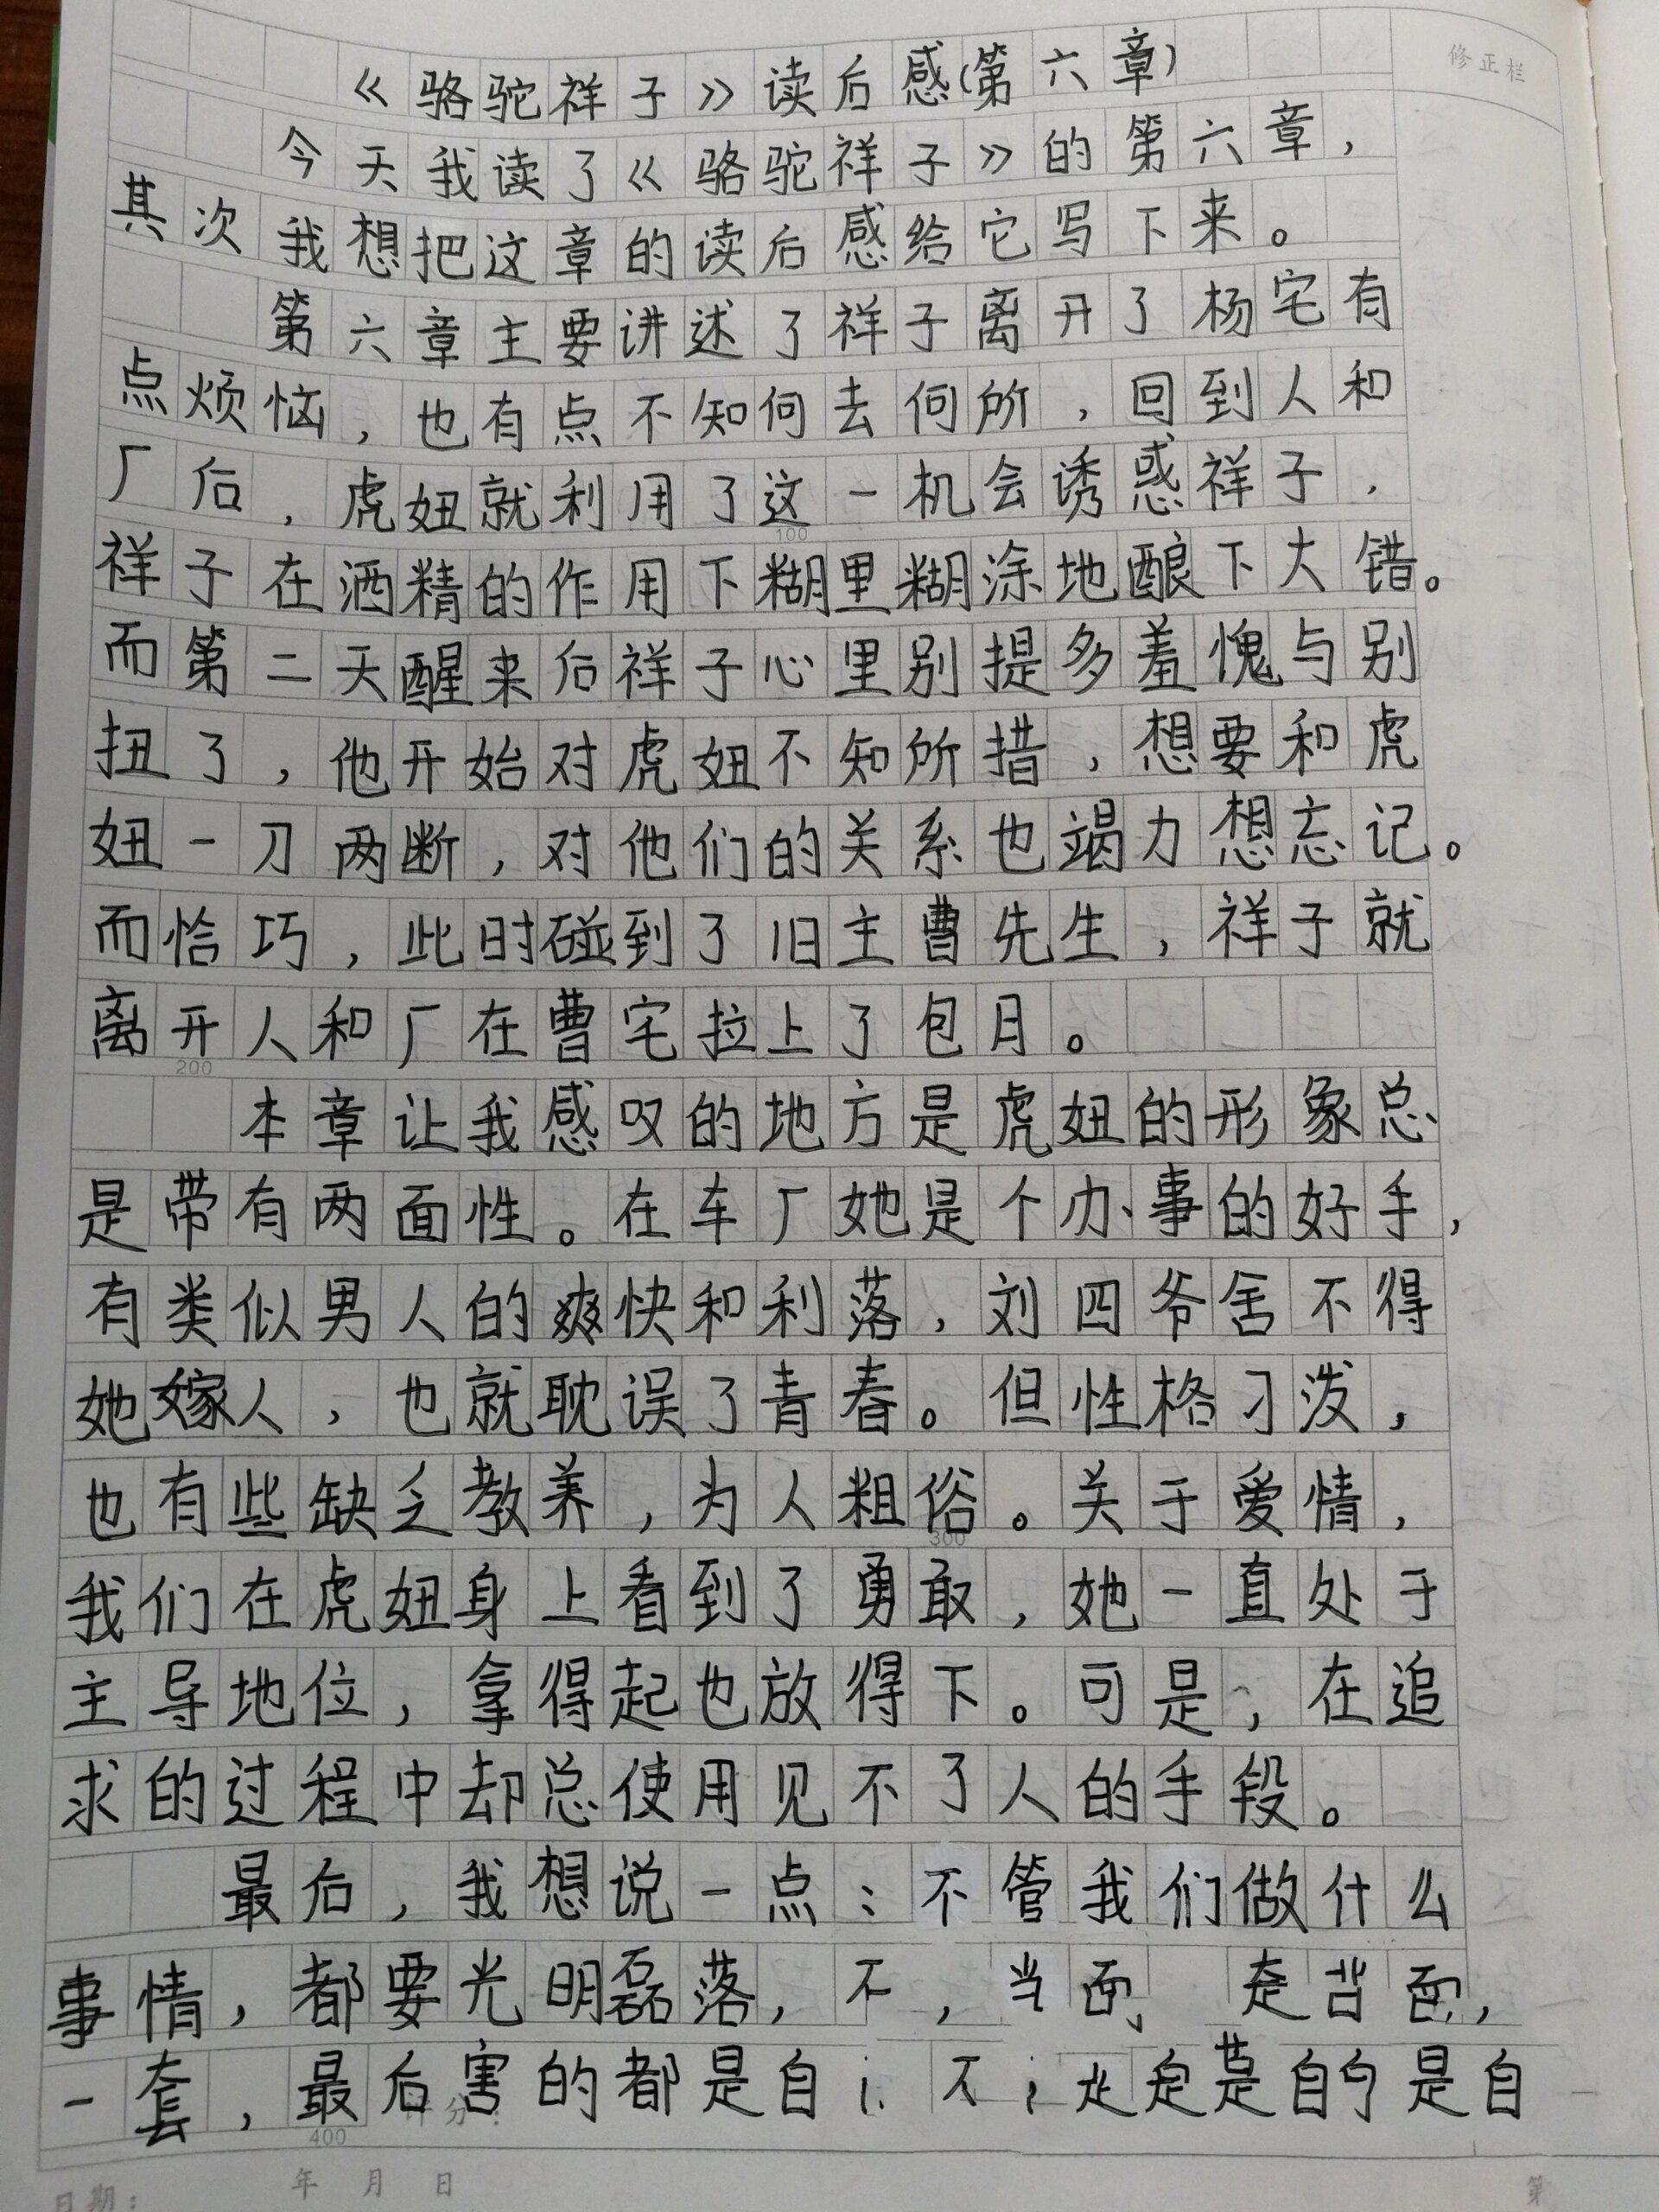 修正栏
《骆驼祥子》读后感(第六章)
今天我读了《骆驼祥子》的第六章，
其次我想把这章的读后感给它写下来。
第六章主要讲述了祥子离开了杨宅有
点烦恼，也有点不知何去何所，回到人和
厂后，虎妞就利用了这一机会诱惑祥子，
祥子在酒精的作用下糊里糊涂地酿下大错。
而第二天醒来后祥子心里别提多羞愧与别
扭了，他开始对虎妞不知所措，想要和虎
妞一刀两断，对他们的关系也竭力想忘记。
而恰巧，此时碰到了旧主曹先生，祥子就
离开人和厂在曹宅拉上了包月。
本章让我感叹的地方是虎妞的形象总
是带有两面性。在车厂她是个办事的好手，
有类似男人的爽快和利落，刘四爷舍不得
她嫁人，也就耽误了青春。但性格刁泼，
也有些缺乏教养，为人粗俗。关于爱情，
我们在虎妞身上看到了勇敢，她一直处于
主导地位，拿得起也放得下。可是，在追
求的过程中却总使用见不了人的手段。
最后，我想说一点：不管我们做什么
事情，都要光明磊落，不，当面 背面，
一套，最后害的都是自 不 是自
100
200
300
400
日期： 年 月 日
第